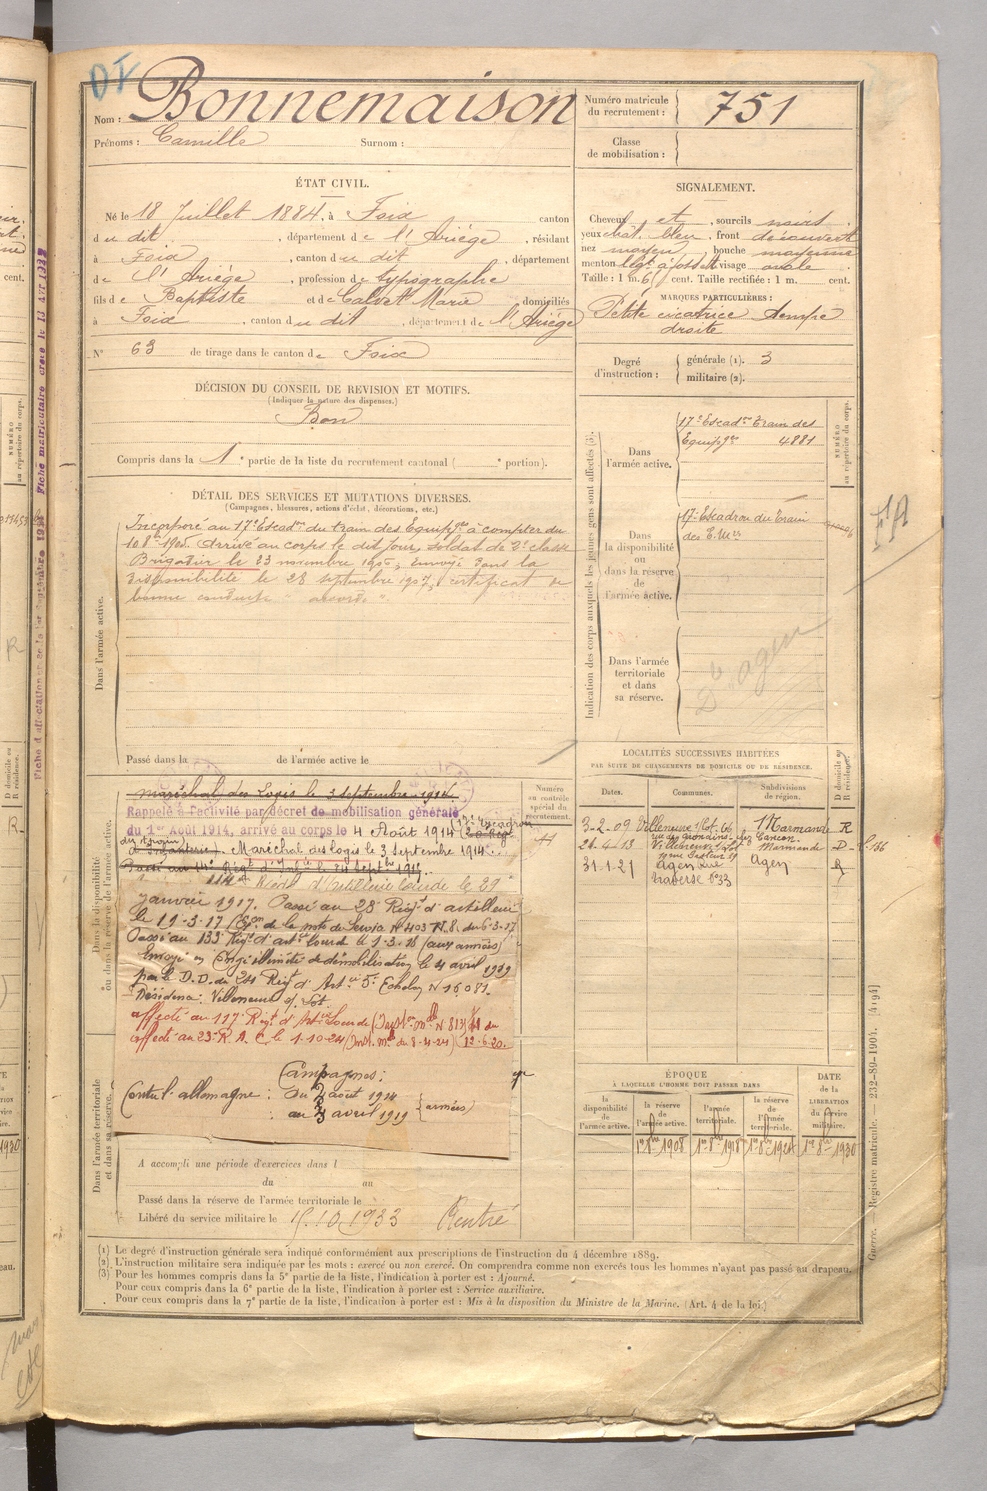 DI
Nom : Bonnemaison
Prénoms : Camille Surnom :
Numéro matricule du recrutement : 751
Classe de mobilisation :
ÉTAT CIVIL.
Né le 18 Juillet 1884, à Foix canton
du dit, département de l'Ariège, résidant
à Foix, canton du dit, département
de l'Ariège, profession de typographe
fils de Baptiste et de Calvet Marie domiciliés
à Foix, canton du dit, département de l'Ariège
N° 63 de tirage dans le canton de Foix
SIGNALEMENT.
Cheveux et, sourcils noirs
yeux chât. bleu, front découvert
nez moyen, bouche moyenne
menton à fossett visage ovale
Taille : 1 m. 6 cent. Taille rectifiée : 1 m. cent.
MARQUES PARTICULIÈRES :
Petite cicatrice tempe
droite
Degré d'instruction : générale (1). 3
militaire (2).
DÉCISION DU CONSEIL DE REVISION ET MOTIFS.
(Indiquer la nature des dispenses.)
Bon
Compris dans la 1e partie de la liste du recrutement cantonal ( e portion).
DÉTAIL DES SERVICES ET MUTATIONS DIVERSES.
(Campagnes, blessures, actions d'éclat, décorations, etc.)
Dans l'armée active.
Incorporé au 17e Escadon du train des Equipges à compter du
10 8bre 1905. Arrivé au corps le dit jour, soldat de 2e classe
Brigadier le 23 novembre 1906, envoyé dans la
disponibilité le 28 septembre 1907, certificat de
bonne conduite "accordé".
Passé dans la de l'armée active le
Indication des corps auxquels les jeunes gens sont affectés (3).
NUMÉRO au répertoire du corps.
Dans l'armée active.
17e Escadon Train des
Equipges 4881
Dans la disponibilité ou dans la réserve de l'armée active.
17e Escadron du Train
des E. Mres
FA
Dans l'armée territoriale et dans sa réserve.
Dt agen
Dans la disponibilité ou dans la réserve de l'armée active.
Maréchal des Logis le 3 septembre 1914
Rappelé à l'activité par décret de mobilisation générale
du 1er Août 1914, arrivé au corps le 4 Août 1914 (17e Escadron
du train) Maréchal des logis le 3 septembre 1914
Passé au 14e Régt d'Infie le 24 Septbre 1915
114e Régt d'Artillerie Lourde le 29
Janvier 1917. Passé au 28 Régt d'artillerie
le 19-3-17 (Eon de la note de Service N° 403 du 6-3-17
Passé au 133 Régt d'artie Lourd le 1-3-18 (aux armées)
Envoyé en Congé illimité de démobilisation le 4 avril 1919
par le D.D. du 24 Régt d'Artie 5e Echelon N 16081.
Résidence : Villeneuve s/ Lot.
affecté au 117 Régt d'Artie Lourde (Inston Mlle N. 813) du
affecté au 23e R. A. C. le 1-10-24 (Inst. Mlle du 8-4-24) 12-6-20.
Campagnes :
Contre l'allemagne : Du 2 août 1914
au 3 avril 1919 (armées)
Numéro au contrôle spécial du recrutement.
LOCALITÉS SUCCESSIVES HABITÉES
PAR SUITE DE CHANGEMENTS DE DOMICILE OU DE RÉSIDENCE.
Dates. Communes. Subdivisions de région. D domicile ou R résidence.
3-2-09 Villeneuve s/Lot Marmande R
21-4-13 Villeneuve s/Lot Marmande D
31-1-21 Agen Rue Agen R
traverse n°33
ÉPOQUE
À LAQUELLE L'HOMME DOIT PASSER DANS
la disponibilité de l'armée active. la réserve de l'armée active. l'armée territoriale. la réserve de l'armée territoriale.
DATE de la LIBÉRATION du service militaire.
1er 8bre 1908 1er 8bre 1918 1er 8bre 1924 1er 8bre 1930
Dans l'armée territoriale et dans sa réserve.
A accompli une période d'exercices dans l
du au
Passé dans la réserve de l'armée territoriale le
Libéré du service militaire le 15.10.1933 Rentré
(1) Le degré d'instruction générale sera indiqué conformément aux prescriptions de l'instruction du 4 décembre 1889.
(2) L'instruction militaire sera indiquée par les mots : exercé ou non exercé. On comprendra comme non exercés tous les hommes n'ayant pas passé au drapeau.
(3) Pour les hommes compris dans la 5e partie de la liste, l'indication à porter est : Ajourné.
Pour ceux compris dans la 6e partie de la liste, l'indication à porter est : Service auxiliaire.
Pour ceux compris dans la 7e partie de la liste, l'indication à porter est : Mis à la disposition du Ministre de la Marine. (Art. 4 de la loi.)
Guerre. — Registre matricule. — 232-89-1904. [4194]